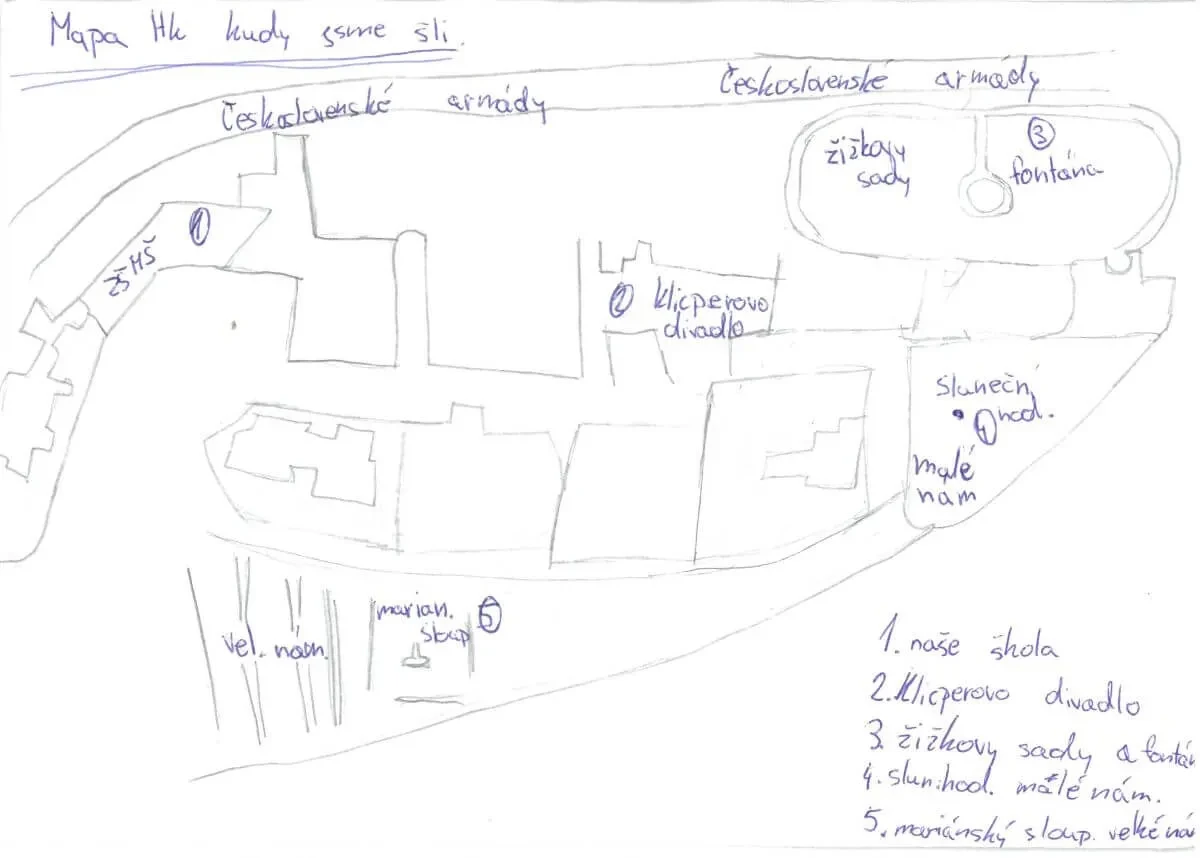 Mapa Hk kudy jsme šli.
Československé armády
Československé armády
žižkovy
sady
3
fontána
1
ZŠ HŠ
2 Klicperovo
divadlo
sluneční
hod.
4
malé
nám
marian. 5
sloup
vel. nám.
1. naše škola
2. Klicperovo divadlo
3. žižkovy sady a fontán
4. slun. hod. malé nám.
5. mariánský sloup. velké ná